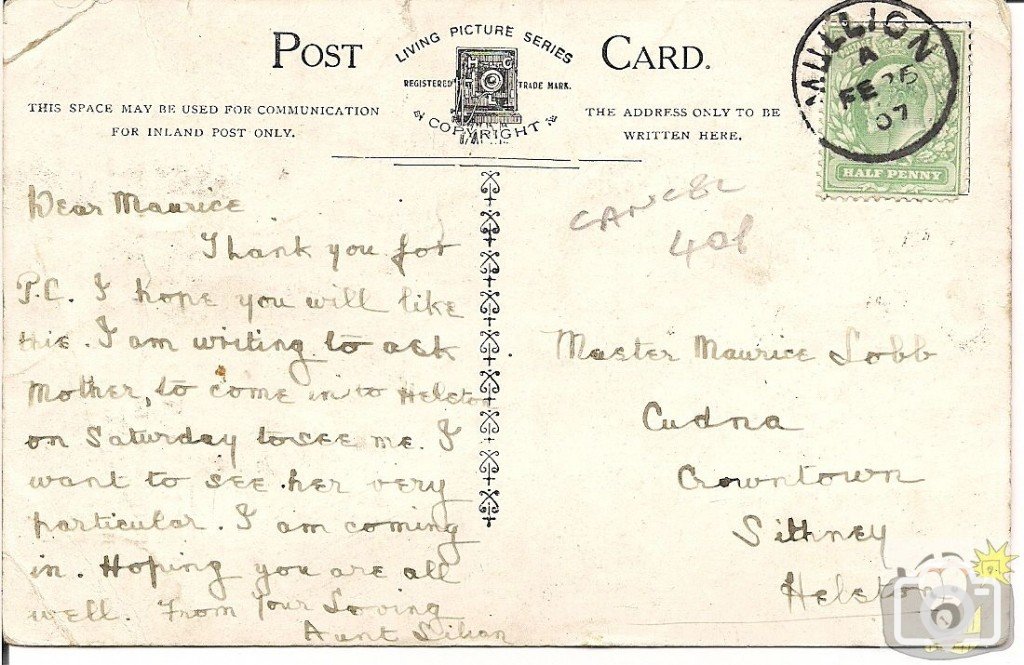 POST CARD.
LIVING PICTURE SERIES
REGISTERED TRADE MARK.
COPYRIGHT
THIS SPACE MAY BE USED FOR COMMUNICATION
FOR INLAND POST ONLY.
THE ADDRESS ONLY TO BE
WRITTEN HERE.
MULLION
A
FE 26
07
HALF PENNY
CANCEL
Dear Maurice
Thank you for
P.C. I hope you will like
this. I am writing to ask
Mother, to come in to Helston
on Saturday to see me. I
want to see her very
particular. I am coming
in. Hoping you are all
well. From Your Loving
Aunt Lilian
Master Maurice Lobb
Cudna
Crowntown
Sithney
Helston